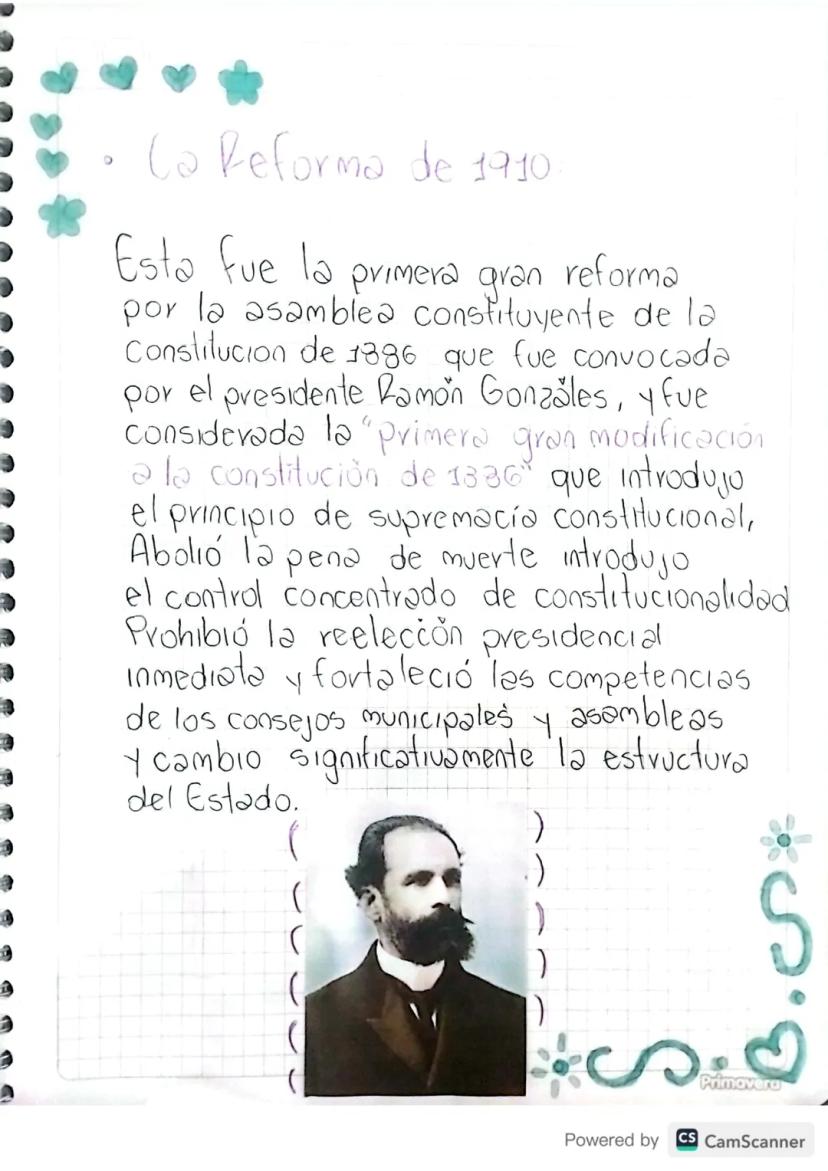 • La Reforma de 1910:
Esta fue la primera gran reforma
por la asamblea constituyente de la
Constitucion de 1886 que fue convocada
por el presidente Ramón Gonzáles, y fue
considerada la "primera gran modificación
a la constitución de 1886" que introdujo
el principio de supremacía constitucional,
Abolió la pena de muerte introdujo
el control concentrado de constitucionalidad
Prohibió la reelección presidencial
inmediata y fortaleció las competencias
de los consejos municipales y asambleas
y cambio significativamente la estructura
del Estado.
Primavera
Powered by CS CamScanner